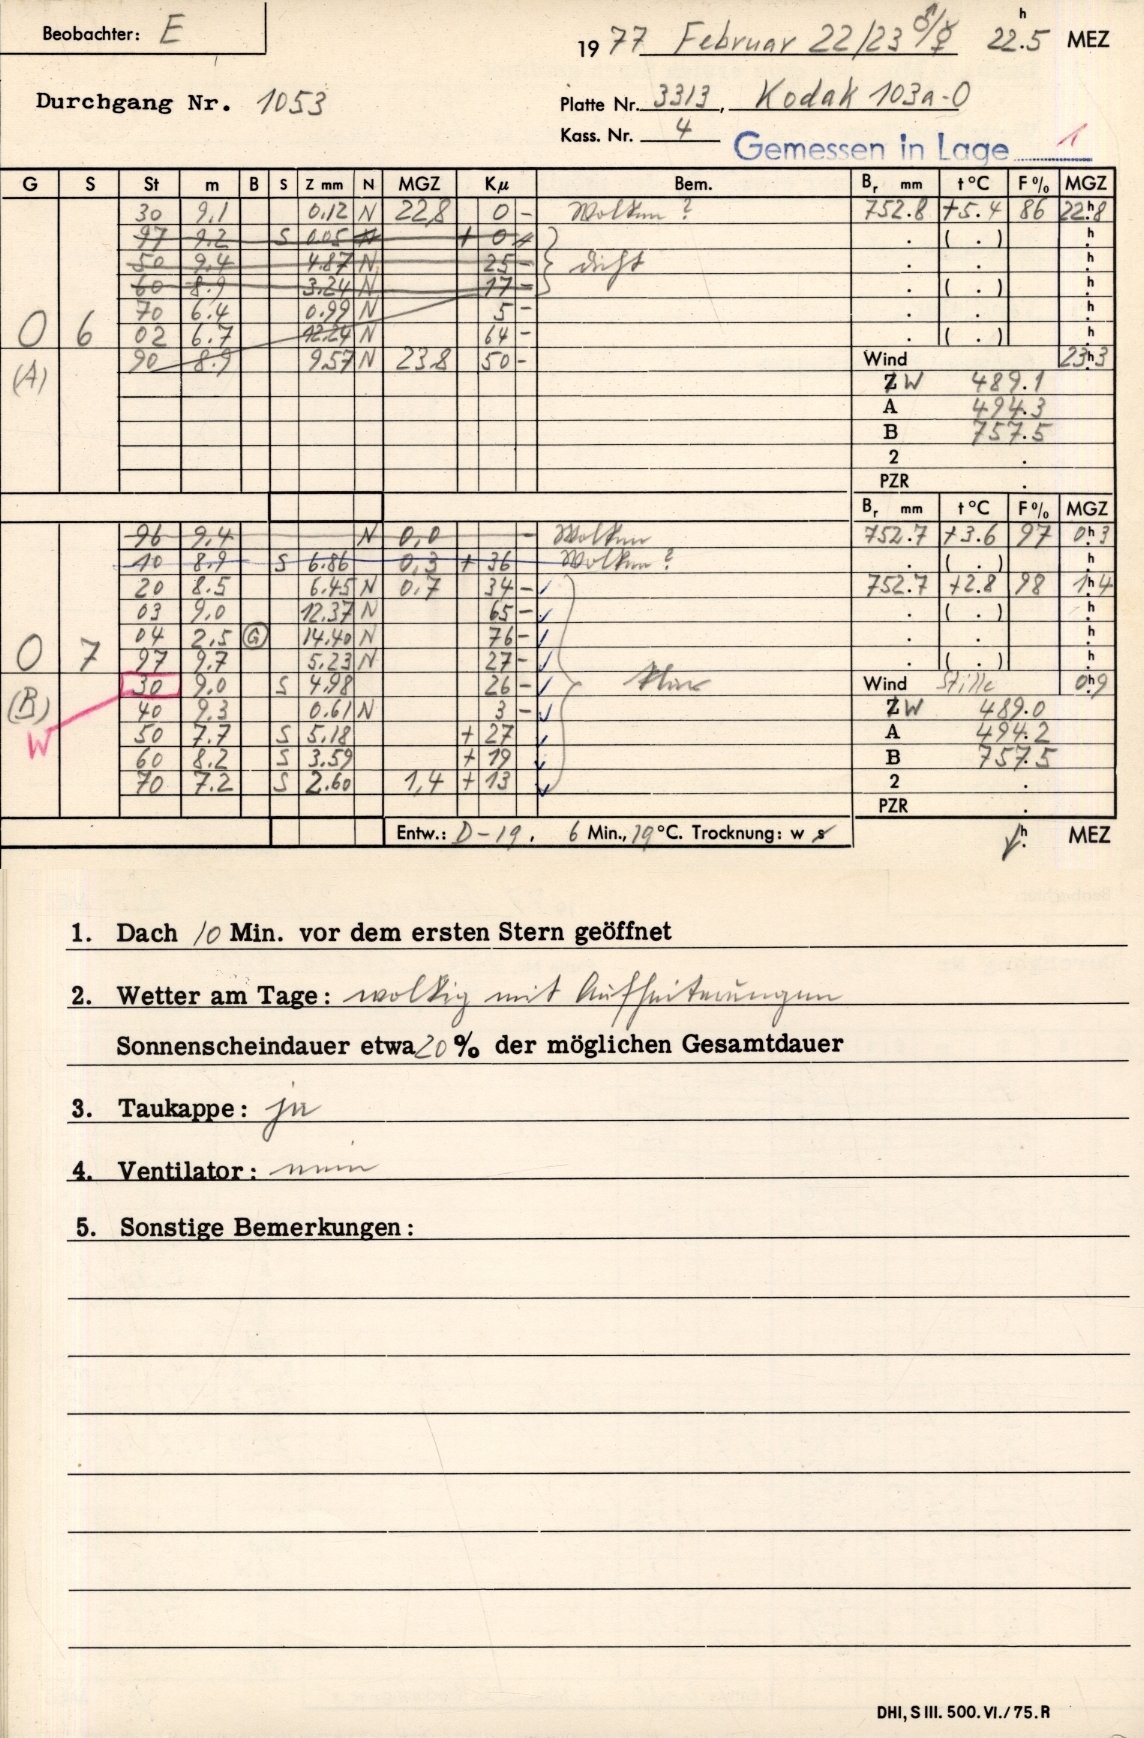 Beobachter: E
1977 Februar 22/23 ♂/☿ 22.5 h MEZ
Durchgang Nr. 1053
Platte Nr. 3313, Kodak 103a-O
Kass. Nr. 4
Gemessen in Lage 1
G S St m B S Z mm N MGZ Kμ Bem. Br mm t°C F% MGZ
30 9.1 0.12 N 22.8 0 - Wolken? 752.8 +5.4 86 22.8 h
97 9.2 S 0.05 N + 0 . ( . ) h
50 9.4 4.87 N 25 - dicht . . h
60 8.9 3.24 N 17 - . ( . ) h
70 6.4 0.99 N 5 - . . h
0 6 02 6.7 12.24 N 64 - . ( . ) h
(A) 90 8.9 9.57 N 23.8 50 - Wind 23.3 h
Z W 489.1
A 494.3
B 757.5
2 .
PZR .
Br mm t°C F% MGZ
96 9.4 N 0,0 - Wolken 752.7 +3.6 97 0.3 h
10 8.9 S 6.86 0,3 + 36 Wolken? . ( . ) h
20 8.5 6.45 N 0.7 34 - ✓ 752.7 +2.8 98 1.4 h
03 9.0 12.37 N 65 - ✓ . ( . ) h
04 2.5 G 14.40 N 76 - ✓ . . h
0 7 97 9.7 5.23 N 27 - ✓ . ( . ) h
(B) 30 9.0 S 4.98 26 - ✓ klar Wind Stille 0.9 h
W 40 9.3 0.61 N 3 - ✓ Z W 489.0
50 7.7 S 5.18 + 27 ✓ A 494.2
60 8.2 S 3.59 + 19 ✓ B 757.5
70 7.2 S 2.60 1,4 + 13 ✓ 2 .
PZR .
Entw.: D-19. 6 Min., 19°C. Trocknung: w s h MEZ
1. Dach 10 Min. vor dem ersten Stern geöffnet
2. Wetter am Tage: wolkig mit Aufheiterungen
Sonnenscheindauer etwa 20% der möglichen Gesamtdauer
3. Taukappe: ja
4. Ventilator: nein
5. Sonstige Bemerkungen:
DHI, S III. 500. VI./75. R